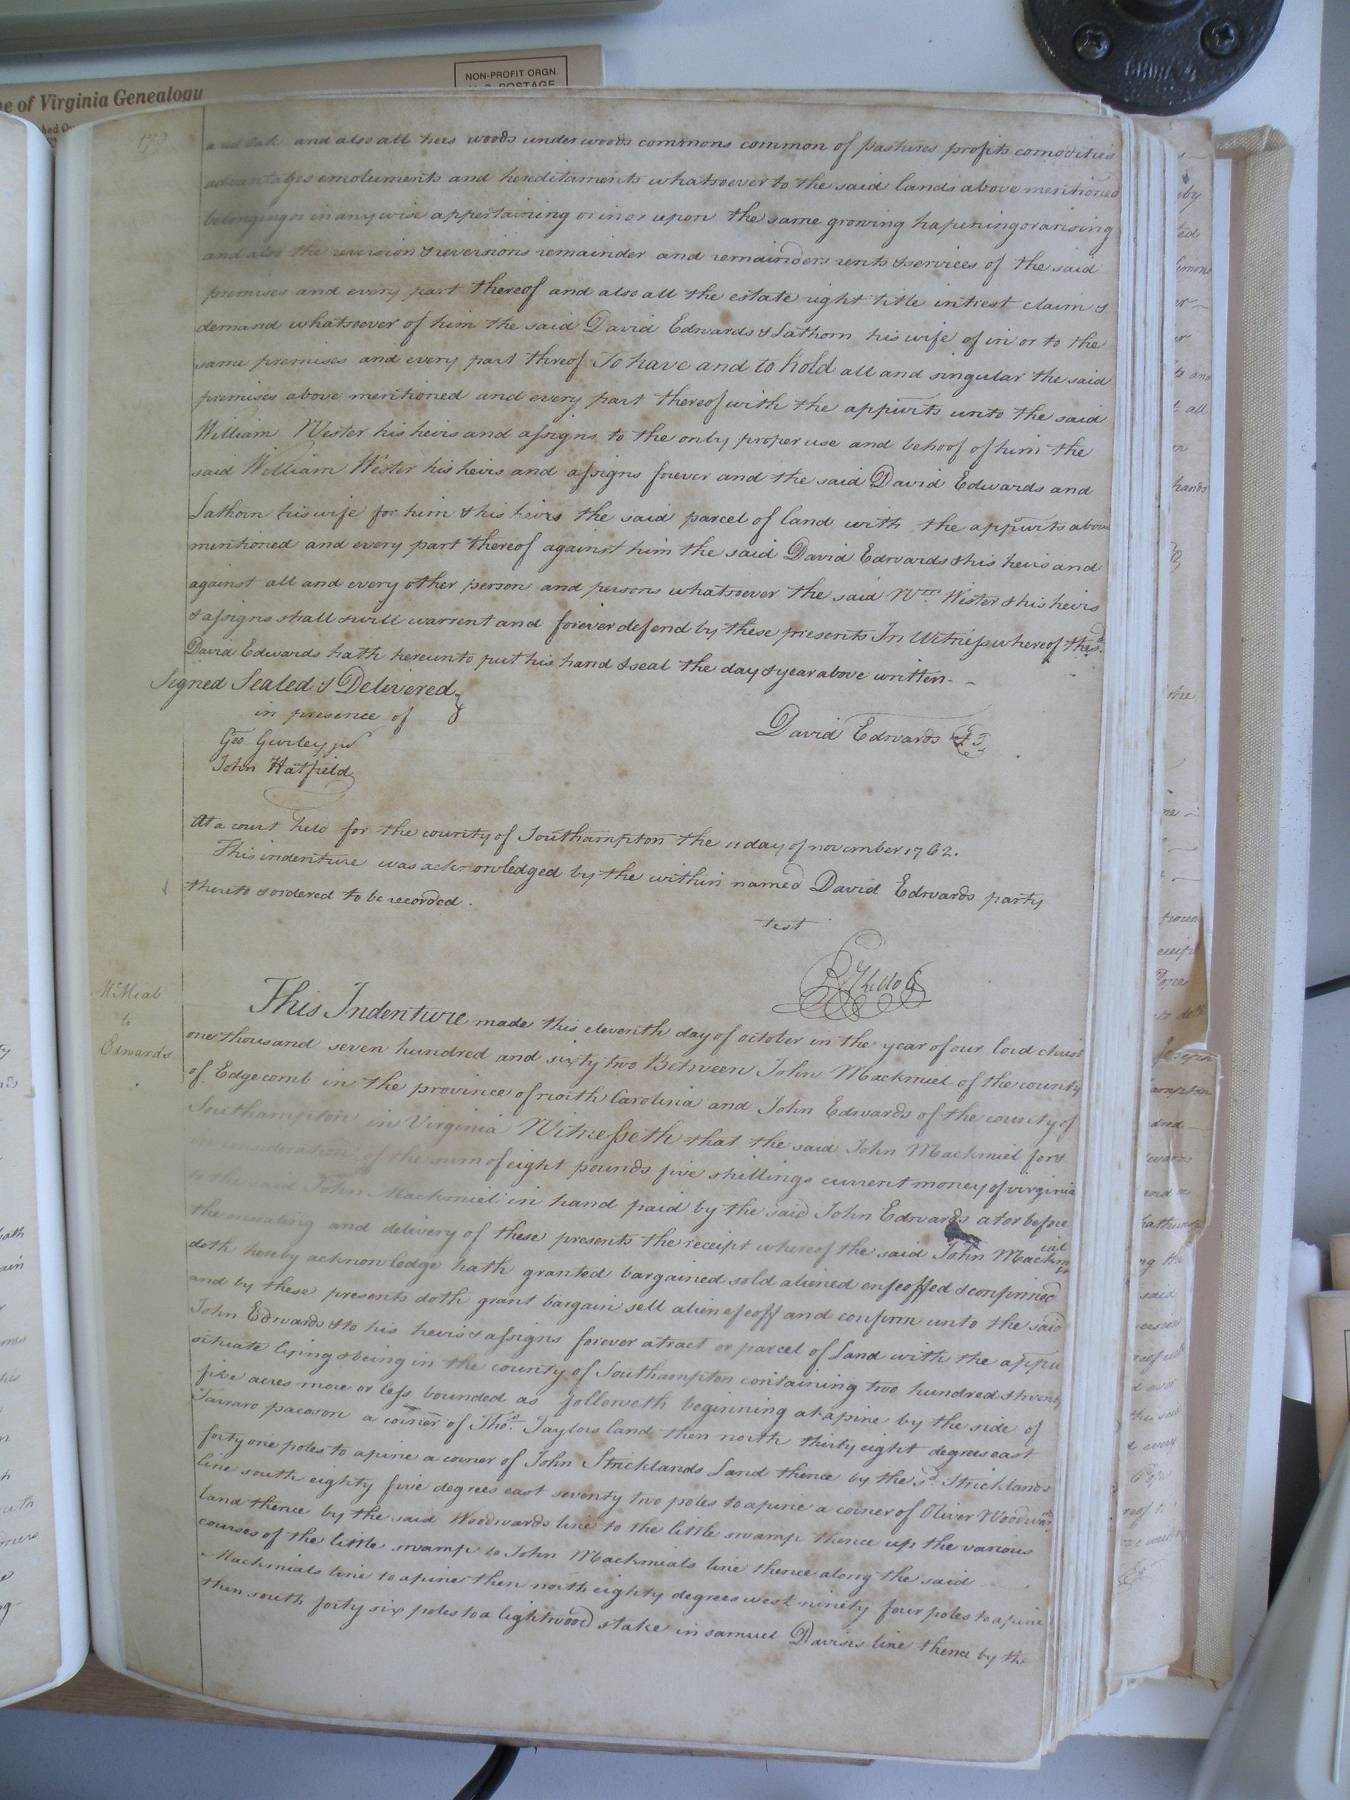 e of Virginia Genealogy
NON-PROFIT ORGN.
U.S. POSTAGE
and Oak and also all heis woods underwoods commons common of pastures profits comodities
advantages emoluments and hereditaments whatsoever to the said lands above mentioned
belonging or in any wise appertaining or in or upon the same growing hapening or arising
and also the reversion & reversions remainder and remainders rents & services of the said
premises and every part thereof and also all the estate right title intrest claim &
demand whatsoever of him the said David Edwards & Lathorn his wife of in or to the
same premises and every part threof To have and to hold all and singular the said
premises above mentioned and every part thereof with the appurts unto the said
William Wester his heirs and assigns to the only proper use and behoof of him the
said William Wester his heirs and assigns forever and the said David Edwards and
Lathorn his wife for him & his heirs the said parcel of land with the appurts above
mentioned and every part thereof against him the said David Edwards & his heirs and
against all and every other person and persons whatsoever the said Wm Wister & his heirs
& assigns shall & will warrent and forever defend by these presents In Witness whereof the sd
David Edwards hath hereunto put his hand & seal the day & year above written
Signed Sealed & Delivered
in presence of
David Edwards
Geo Gurley jr
John Hatfield
At a court held for the county of Southampton the 11 day of november 1762.
This indenture was acknowledged by the within named David Edwards party
thereto & ordered to be recorded.
test
R Kello C
McMial
to
Edwards
This Indenture made this eleventh day of october in the year of our lord christ
one thousand seven hundred and sixty two Between John Mackmiel of the county
of Edgecomb in the province of north Carolina and John Edwards of the county of
Southampton in Virginia Witnesseth that the said John Mackmiel for &
in consideration of the sum of eight pounds five shillings current money of virginia
to the said John Mackmiel in hand paid by the said John Edwards at or before
the ensealing and delivery of these presents the receipt whereof the said John Mackmiel
doth hereby acknowledge hath granted bargained sold aliened enfeoffed & confirmed
and by these presents doth grant bargain sell alien efeoff and confirm unto the said
John Edwards & to his heirs & assigns forever a tract or parcel of Land with the appu
situate lying & being in the county of Southampton containing two hundred & twenty
five acres more or less bounded as followeth beginning at a pine by the side of
Tarraro pacoson a corner of Thos. Taylors land then north thirty eight degrees east
forty one poles to a pine a corner of John Stricklands Land thence by the sd. Stricklands
line south eighty five degrees east seventy two poles to a pine a corner of Oliver Woodwds
land thence by the said Woodwards line to the little swamp thence up the various
courses of the little swamp to John Mackmials line thence along the said
Mackmials line to a pine then north eighty degrees west ninety four poles to a pine
then south forty six poles to a lightwood stake in samuel Davises line thence by the